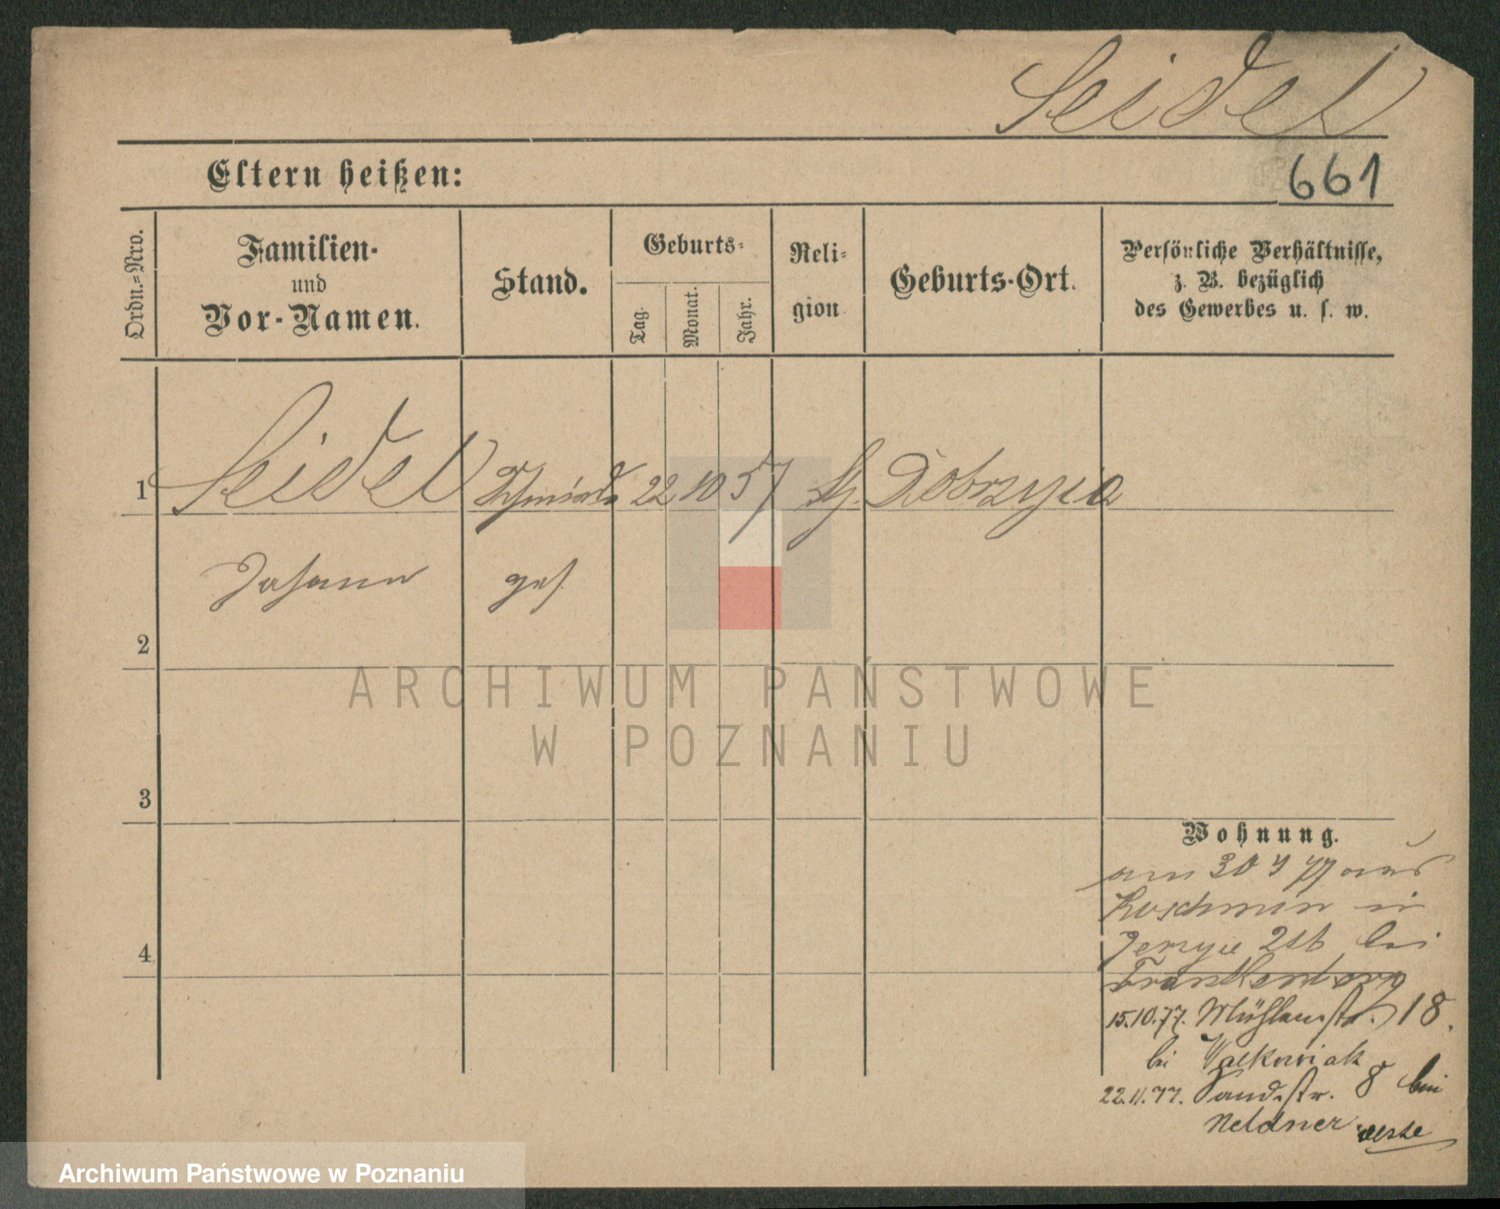 Seidel
Eltern heißen:
661
Ordn.-Nro.
Familien-
und
Vor-Namen.
Stand.
Geburts-
Tag.
Monat.
Jahr.
Reli-
gion
Geburts-Ort.
Persönliche Verhältnisse,
z. B. bezüglich
des Gewerbes u. s. w.
1 Seidel Schmiede 22 10 57 Dobrzyca
Johann ges.
2
ARCHIWUM PAŃSTWOWE
W POZNANIU
3
Wohnung.
am 30 9 77 aus
Koschmin in
Jerzyce 21b bei
Frankenberg
15.10.77. Mühlenstr. 18.
bei Walkowiak
22.11.77. Sandstr. 8 bei
Neldner
4
Archiwum Państwowe w Poznaniu